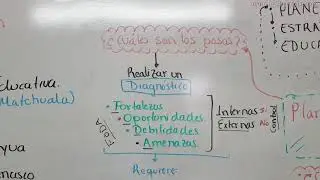 PLANE
ESTRA
EDUCA
¿Cuáles son los pasos?
Realizar un
Diagnóstico
Educativa.
(Matehuala)
• Fortalezas
• Oportunidades
• Debilidades
• Amenazas
FODA
Internas Si
Externas No
Control
Plan
yua
nasio
Requiere: